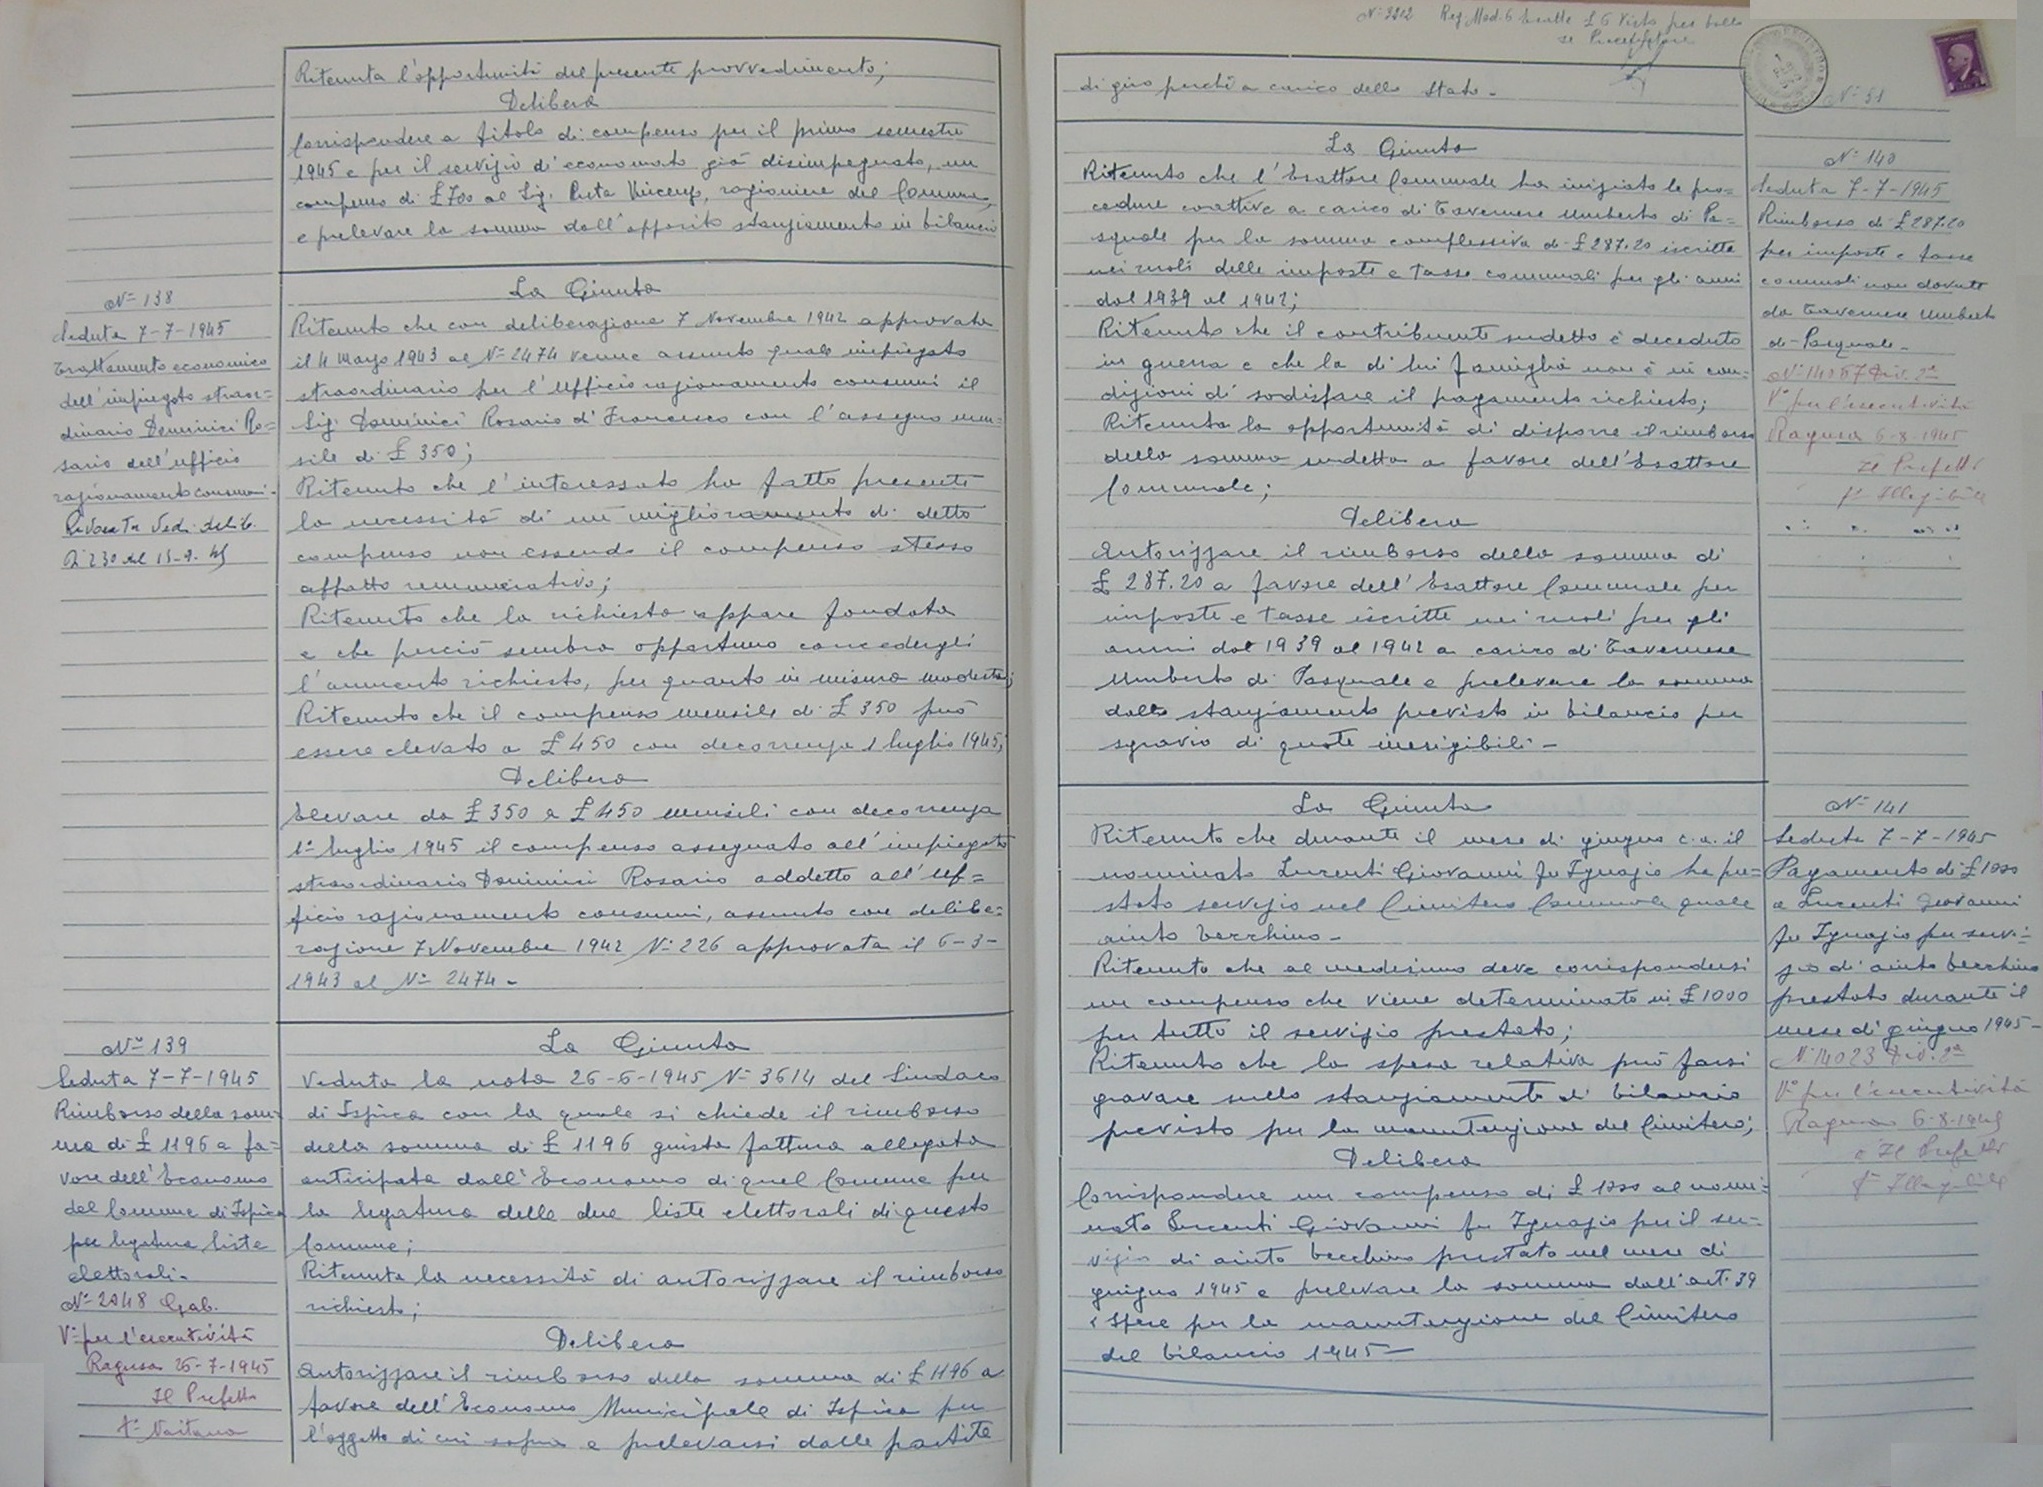 Ritenuta l'opportunità del presente provvedimento;
Delibera
Corrispondere a titolo di compenso per il primo semestre
1945 e per il servizio di economato già disimpegnato, un
compenso di £ 700 al Sig. Vincenzo, ragioniere del Comune,
e prelevare la somma dall'apposito stanziamento in bilancio
N° 138
Seduta 7-7-1945
Trattamento economico
dell'impiegato straor=
dinario Dominici Ro=
sario dell'ufficio
razionamento consumi.
Revocata Ved. delib.
230 del 15-9-45
La Giunta
Ritenuto che con deliberazione 7 Novembre 1942 approvata
il 4 Marzo 1943 al N° 2474 venne assunto quale impiegato
straordinario per l'ufficio razionamento consumi il
Sig. Dominici Rosario di Francesco con l'assegno men=
sile di £ 350;
Ritenuto che l'interessato ha fatto presente
la necessità di un miglioramento di detto
compenso non essendo il compenso stesso
affatto remunerativo;
Ritenuto che la richiesta appare fondata
e che perciò sembra opportuno concedergli
l'aumento richiesto, per quanto in misura modesta;
Ritenuto che il compenso mensile di £ 350 può
essere elevato a £ 450 con decorrenza 1 luglio 1945;
Delibera
Elevare da £ 350 a £ 450 mensili con decorrenza
1° luglio 1945 il compenso assegnato all'impiegato
straordinario Dominici Rosario addetto all'Uf=
ficio razionamento consumi, assunto con delibe=
razione 7 Novembre 1942 N° 226 approvata il 6-3-
1943 al N° 2474 -
N° 139
Seduta 7-7-1945
Rimborso della som=
ma di £ 1196 a fa=
vore dell'Economo
del Comune di Ispica
per legatura liste
elettorali.
N° 2048 Gab.
V° per l'esecutività
Ragusa 26-7-1945
Il Prefetto
f°
La Giunta
Veduta la nota 26-6-1945 N° 3614 del Sindaco
di Ispica con la quale si chiede il rimborso
della somma di £ 1196 giusta fattura allegata
anticipata dall'Economo di quel Comune per
la legatura delle due liste elettorali di questo
Comune;
Ritenuta la necessità di autorizzare il rimborso
richiesto;
Delibera
Autorizzare il rimborso della somma di £ 1196 a
favore dell'Economo Municipale di Ispica per
l'oggetto di cui sopra e prelevarsi dalle partite
N° 2212 Reg. Mod. 6 £ 6 Visto per bollo
di giro perchè a carico dello Stato -
N° 51
La Giunta
Ritenuto che l'Esattore Comunale ha iniziato le pro=
cedure coattive a carico di Tavernese Umberto di Pa=
squale per la somma complessiva di £ 287.20 iscritta
nei ruoli delle imposte e tasse comunali per gli anni
dal 1939 al 1942;
Ritenuto che il contribuente sudetto è deceduto
in guerra e che la di lui famiglia non è in con=
dizioni di sodisfare il pagamento richiesto;
Ritenuta la opportunità di disporre il rimborso
della somma sudetta a favore dell'Esattore
Comunale;
Delibera
Autorizzare il rimborso della somma di
£ 287.20 a favore dell'Esattore Comunale per
imposte e tasse iscritte nei ruoli per gli
anni dal 1939 al 1942 a carico di Tavernese
Umberto di Pasquale e prelevare la somma
dallo stanziamento previsto in bilancio per
sgravio di quote inesigibili -
N° 140
Seduta 7-7-1945
Rimborso di £ 287.20
per imposte e tasse
comunali non dovute
da Tavernese Umberto
di Pasquale -
N° 14067 Div. 2ª
V° per l'esecutività
Ragusa 6-8-1945
Il Prefetto
f° Illegibile
La Giunta
Ritenuto che durante il mese di giugno c.a. il
nominato Lucenti Giovanni fu Ignazio ha pre=
stato servizio nel Cimitero Comunale quale
aiuto becchino -
Ritenuto che al medesimo deve corrispondersi
un compenso che viene determinato in £ 1000
per tutto il servizio prestato;
Ritenuto che la spesa relativa può farsi
gravare sullo stanziamento di bilancio
previsto per la manutenzione del Cimitero;
Delibera
Corrispondere un compenso di £ 1000 al nomi=
nato Lucenti Giovanni fu Ignazio per il ser=
vizio di aiuto becchino prestato nel mese di
giugno 1945 e prelevare la somma dall'art. 39
"Spese per la manutenzione del Cimitero
del bilancio 1945 -
N° 141
Seduta 7-7-1945
Pagamento di £ 1000
a Lucenti Giovanni
fu Ignazio per servi=
zio di aiuto becchino
prestato durante il
mese di giugno 1945 -
N° 14023 Div. 2ª
V° per l'esecutività
Ragusa 6-8-1945
Il Prefetto
f° Illegibile